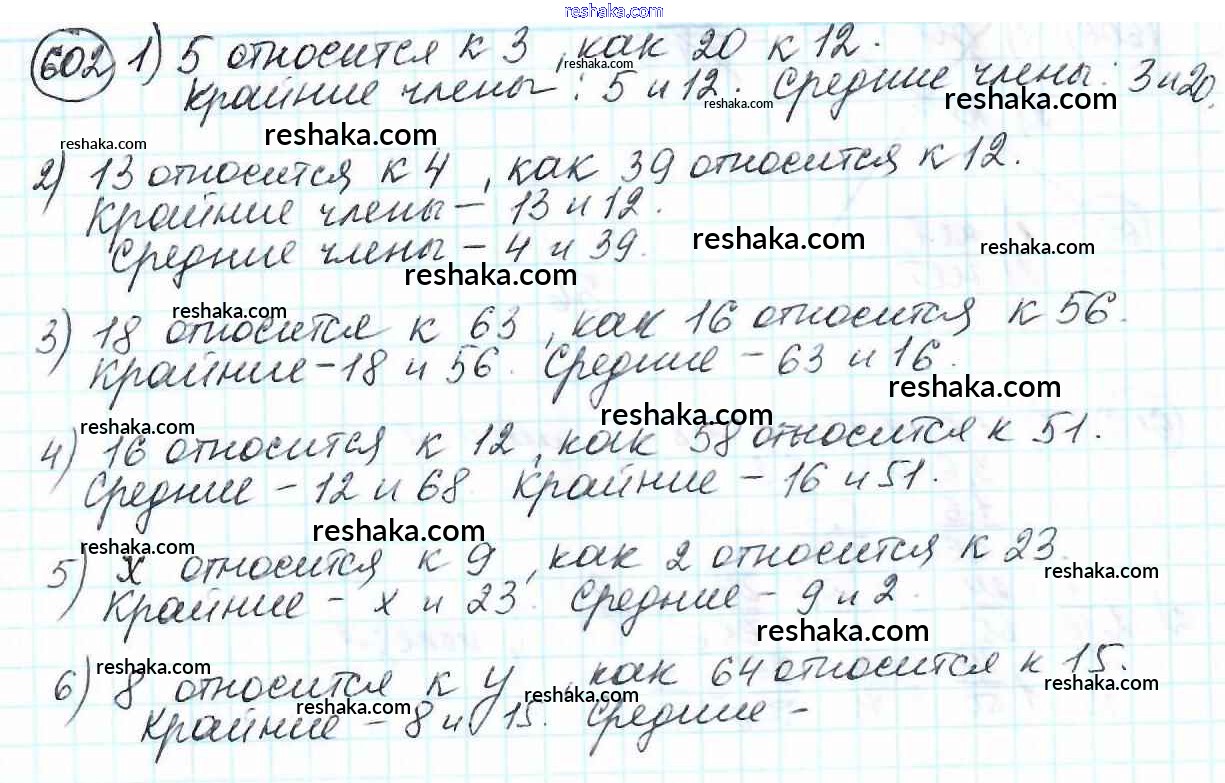 reshaka.com
602 1) 5 относится к 3, как 20 к 12.
reshaka.com
Крайние члены: 5 и 12. Средние члены: 3 и 20.
reshaka.com
reshaka.com
reshaka.com
reshaka.com
2) 13 относится к 4, как 39 относится к 12.
Крайние члены – 13 и 12.
reshaka.com
Средние члены – 4 и 39.
reshaka.com
reshaka.com
reshaka.com
3) 18 относится к 63, как 16 относится к 56.
Крайние – 18 и 56. Средние – 63 и 16.
reshaka.com
reshaka.com
reshaka.com
4) 16 относится к 12, как 58 относится к 51.
Средние – 12 и 68 Крайние – 16 и 51.
reshaka.com
reshaka.com
5) x относится к 9, как 2 относится к 23.
reshaka.com
Крайние – x и 23. Средние – 9 и 2.
reshaka.com
reshaka.com
6) 8 относится к y, как 64 относится к 15.
reshaka.com
reshaka.com
reshaka.com
Крайние – 8 и 15. Средние –